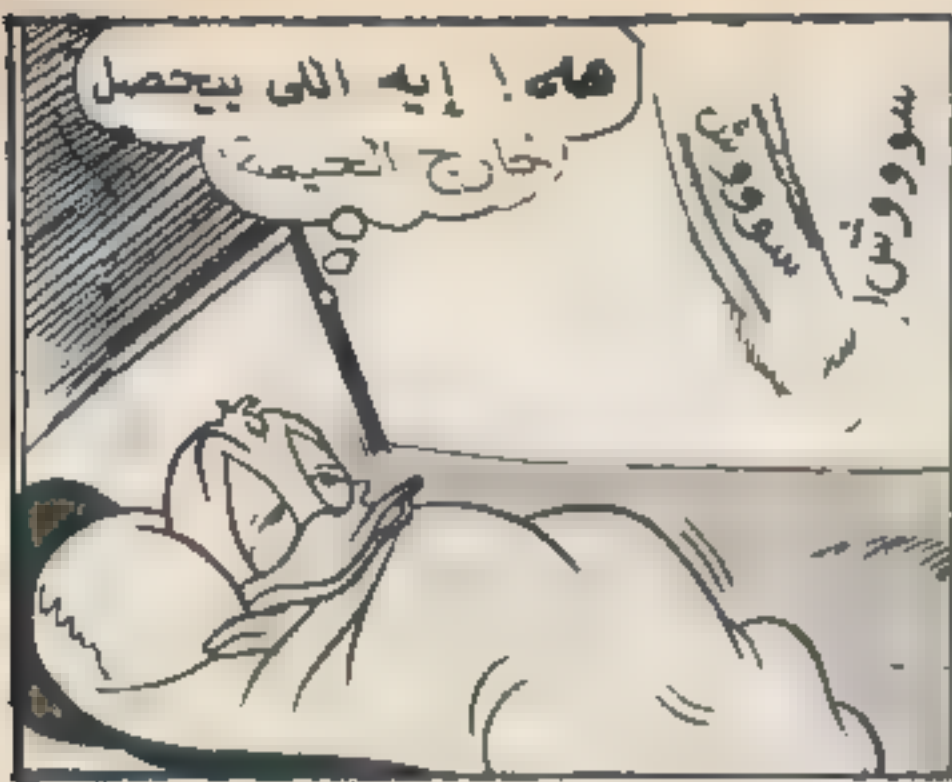 هه! إيه اللى بيحصل
خارج الخيمة
سوووش
سوووش!